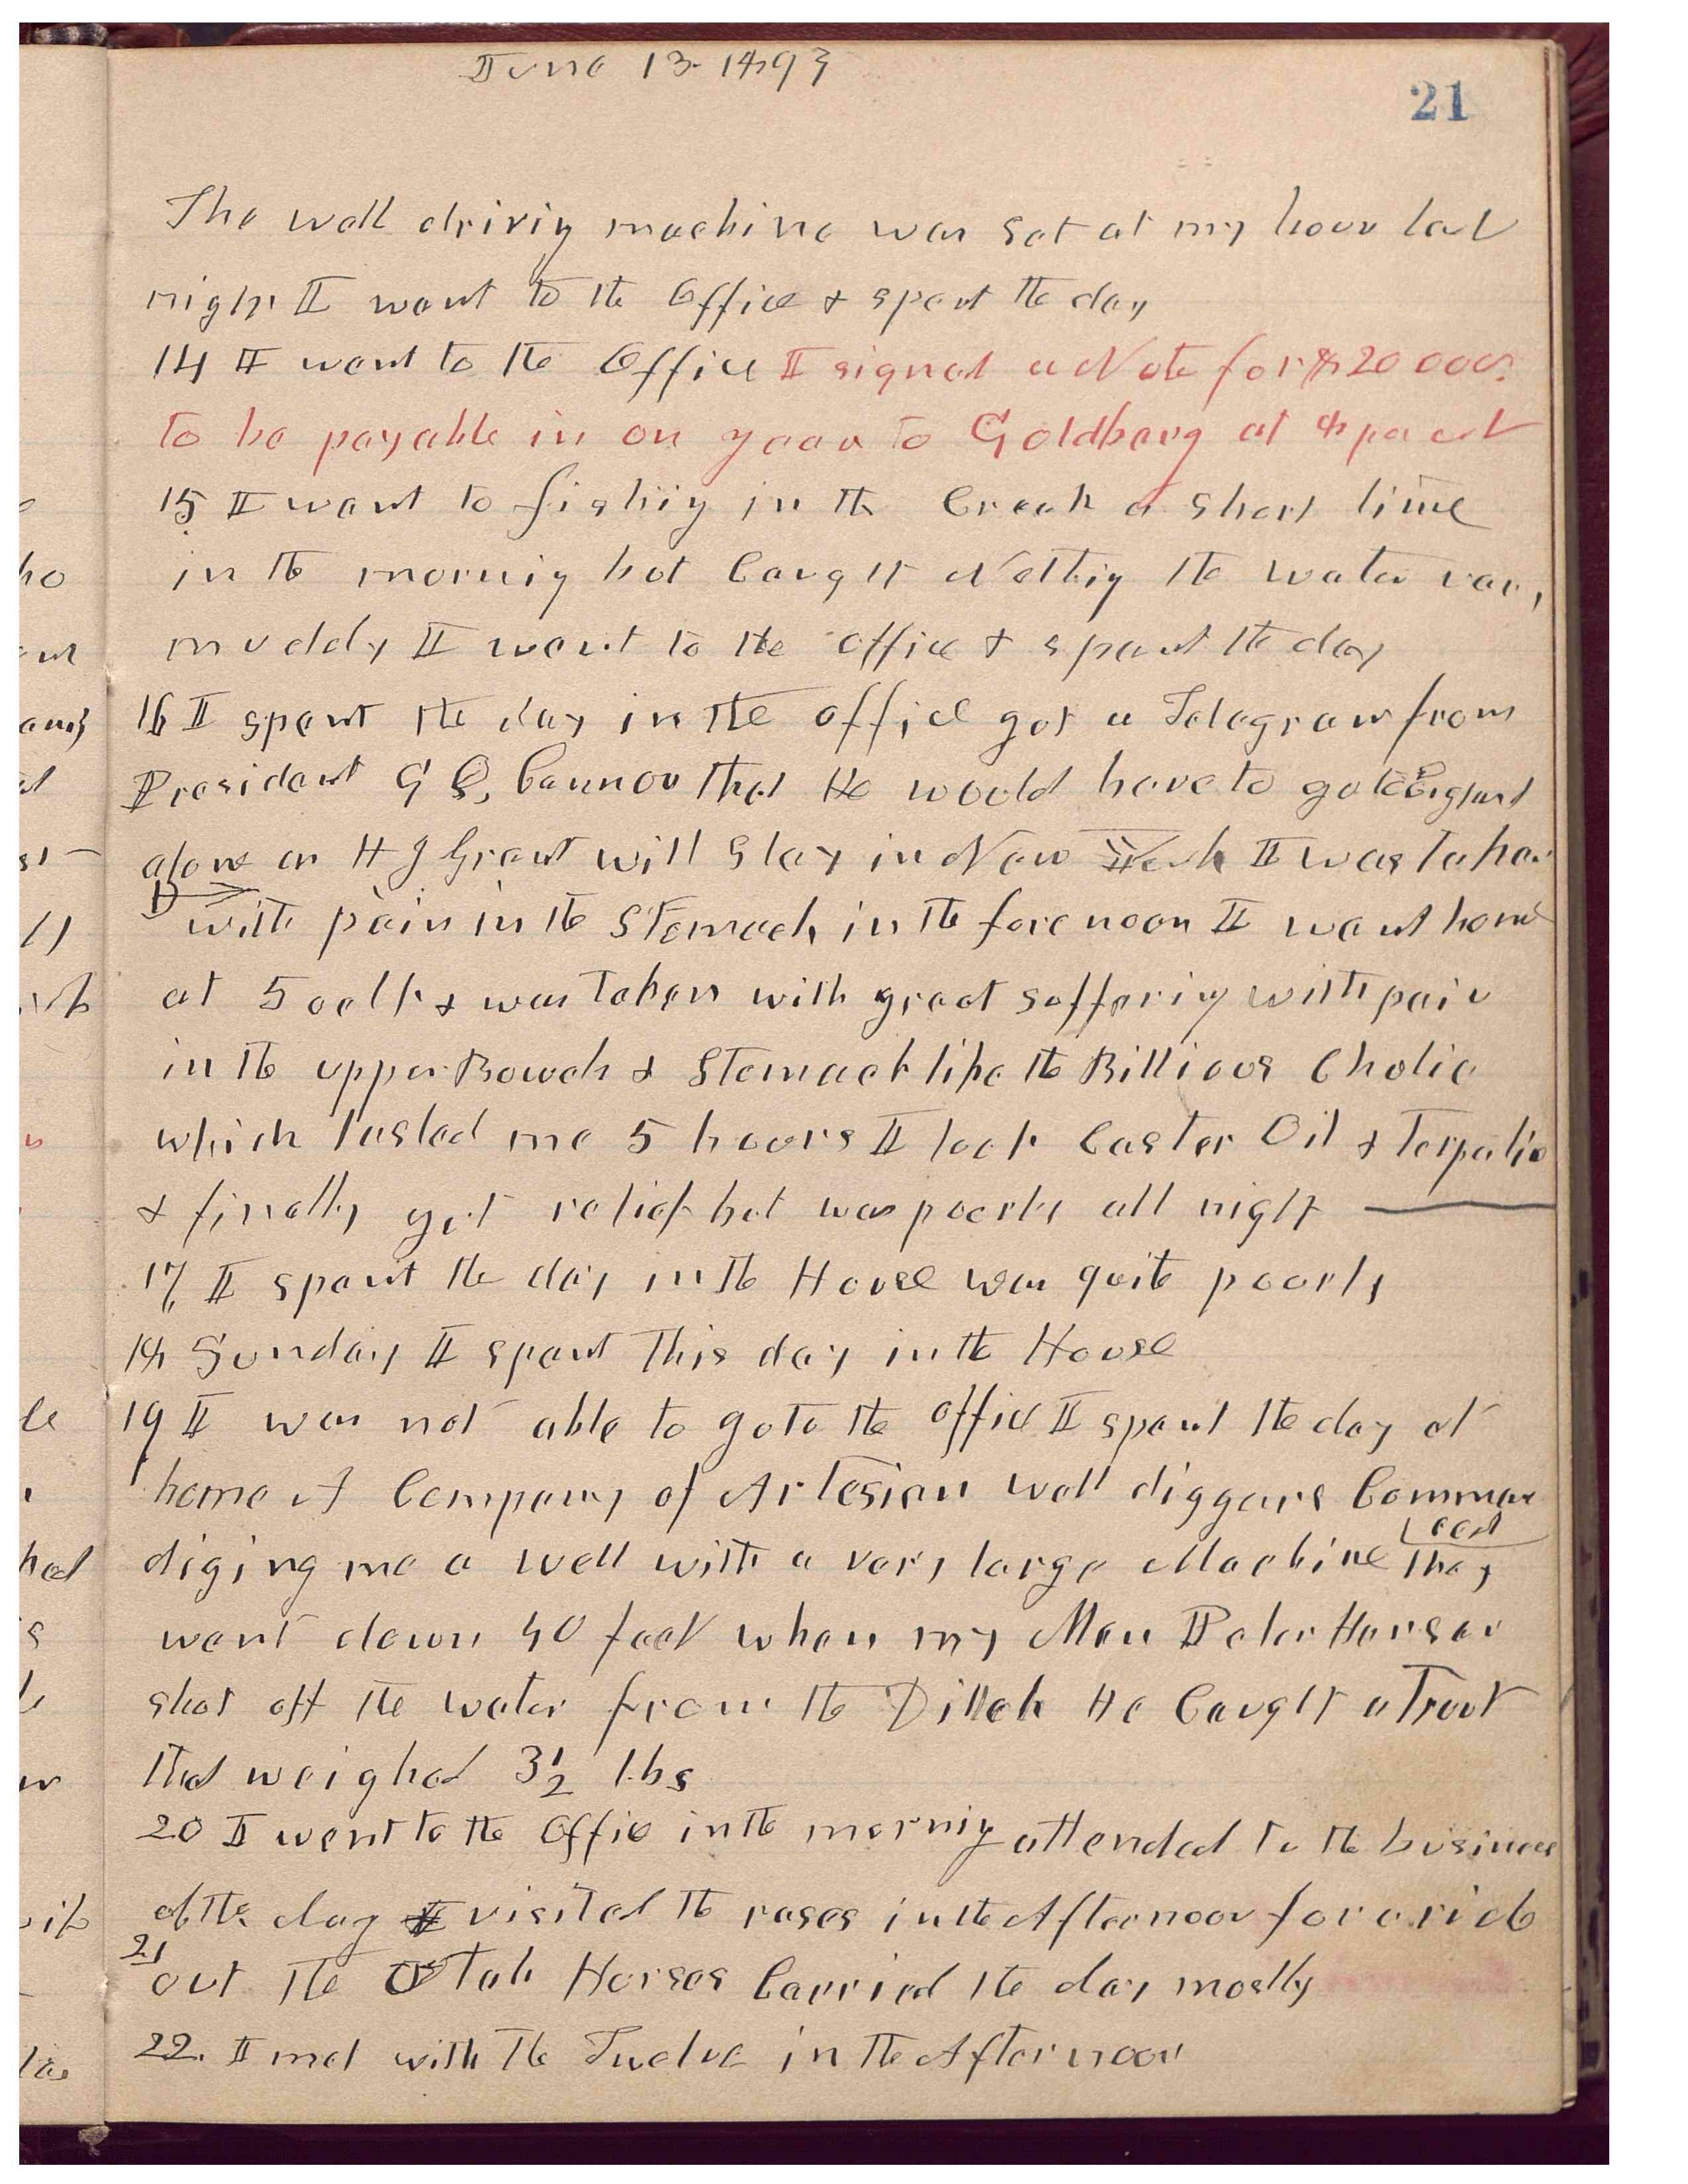 June 13. 1893
21
The well driving machine was set at my hous last
night I went to the Office & spent the day
14 I went to the Office I signed a Note for $20000.
to be payable in on year to Goldberg at 8 per cent
15 I went to fishing in the Creek a short time
in the morning but Caught Nothing the water was,
muddy I went to the office & spent the day
16 I spent the day in the office got a Telegram from
President G Q, Cannon that He would have to go to England
alone as H J Grant will Stay in New York I was taken
with pain in the Stomach in the forenoon I went home
at 5 oclk & was taken with great suffering with pain
in the upper Bowels & Stomach like the Billious Cholic
which lasted me 5 hours I took Caster Oil &
& finally got relief but was poorly all night
17, I spent the day in the House was quite poorly
18 Sunday I spent This day in the House
19 I was not able to go to the office I spent the day at
home A Company of Artesian well diggers Commenced
diging me a well with a very large Machine They
went down 40 feet when my Man Peter Hansen
shut off the water from the Ditch He Caught a Trout
that weighed 3 1/2 lbs
20 I went to the Office in the morning attended to the business
of the day I visited the rases in the Afternoon for a ride
21
out the Utah Horses Carried the day mostly
22. I met with the Twelve in the Afternoon